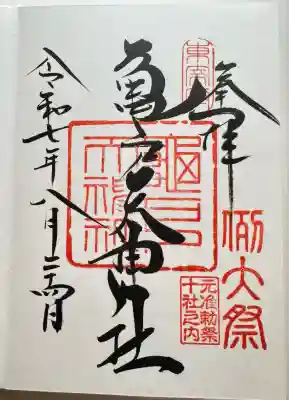 東宰府
奉拝
例大祭
元准勅祭
十社之内
亀戸天神社
令和七年八月二十四日